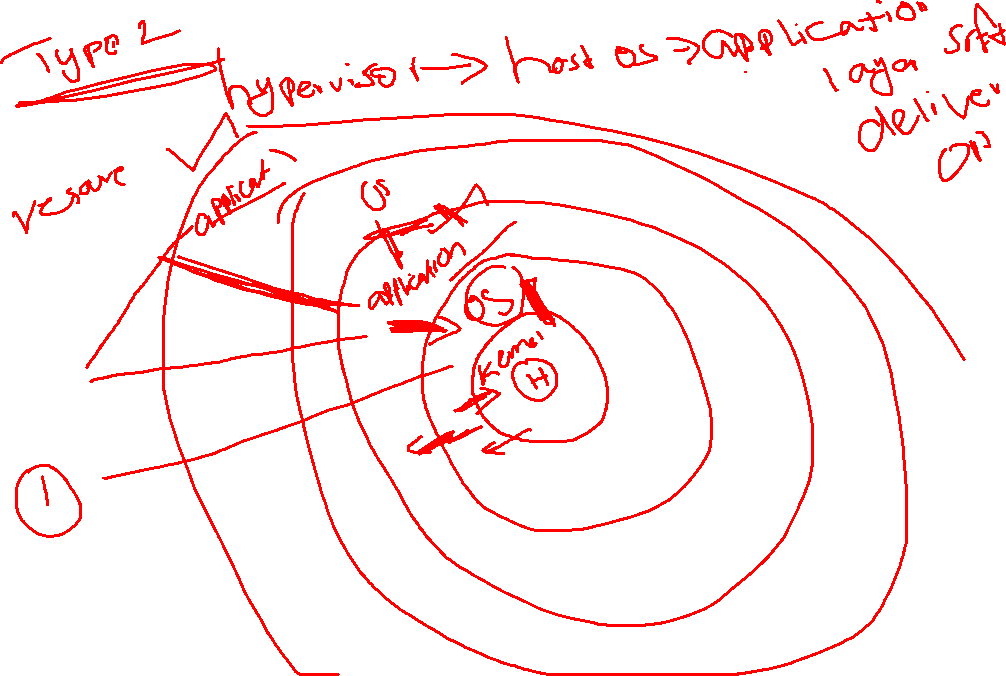 Type 2
hypervisor → host os → application
layer soft
deliver
on
vesare
applicat
OS
application
OS
Kernel
H
1